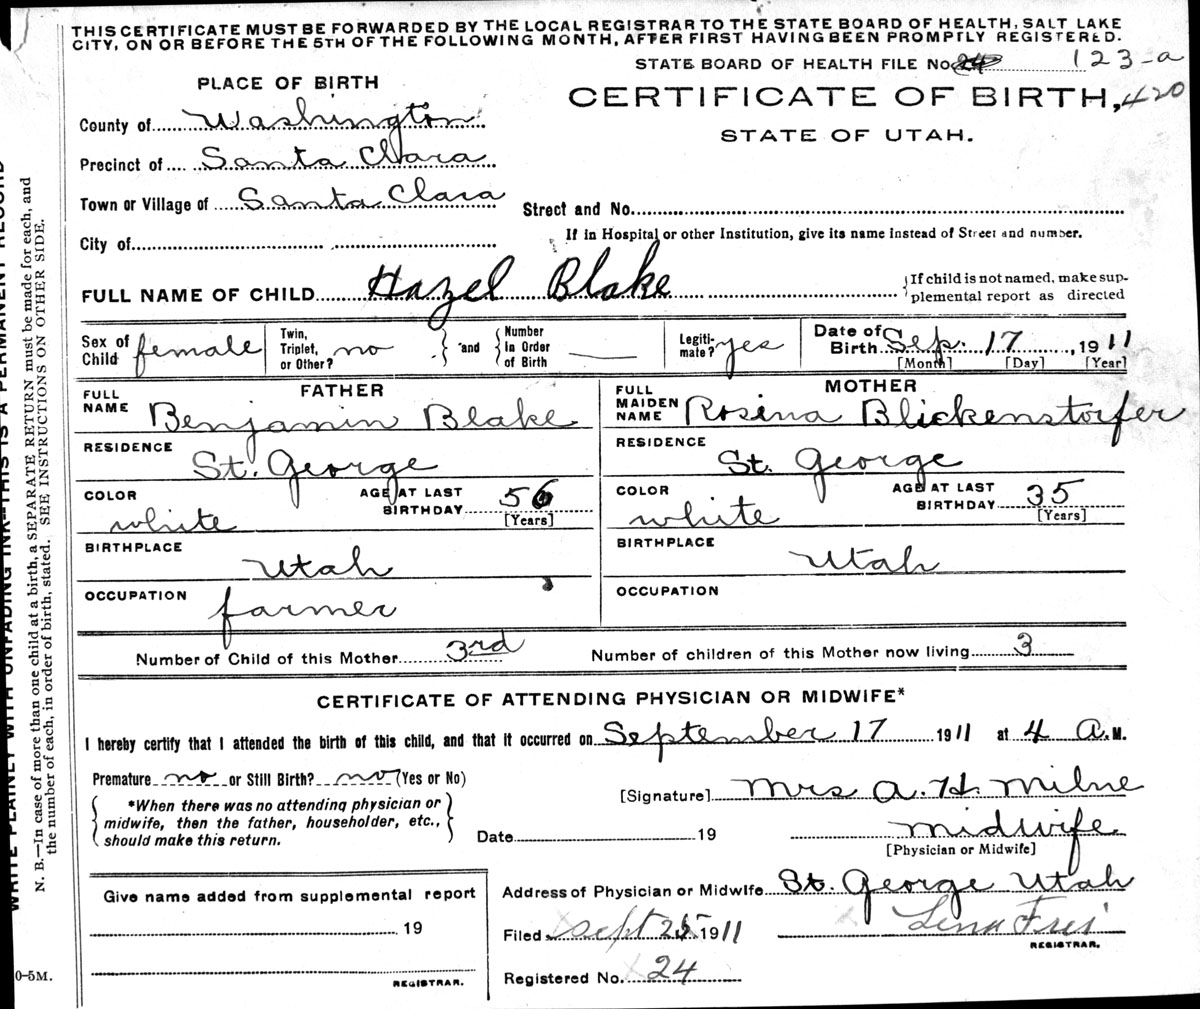 THIS CERTIFICATE MUST BE FORWARDED BY THE LOCAL REGISTRAR TO THE STATE BOARD OF HEALTH, SALT LAKE
CITY, ON OR BEFORE THE 5TH OF THE FOLLOWING MONTH, AFTER FIRST HAVING BEEN PROMPTLY REGISTERED.
STATE BOARD OF HEALTH FILE No. 24 123-a
PLACE OF BIRTH
CERTIFICATE OF BIRTH, 420
STATE OF UTAH.
County of Washington
Precinct of Santa Clara
Town or Village of Santa Clara
Street and No.
City of
If in Hospital or other Institution, give its name instead of Street and number.
FULL NAME OF CHILD Hazel Blake
If child is not named, make sup-
plemental report as directed
Sex of Child female
Twin, Triplet, or Other? no
and
Number In Order of Birth
Legiti-mate? yes
Date of Birth Sep. 17, 1911
[Month] [Day] [Year]
FATHER
MOTHER
FULL NAME Benjamin Blake
FULL MAIDEN NAME Rosina Blickenstorfer
RESIDENCE St. George
RESIDENCE St. George
COLOR white
AGE AT LAST BIRTHDAY 56
[Years]
COLOR white
AGE AT LAST BIRTHDAY 35
[Years]
BIRTHPLACE Utah
BIRTHPLACE Utah
OCCUPATION farmer
OCCUPATION
Number of Child of this Mother 3rd
Number of children of this Mother now living 3
CERTIFICATE OF ATTENDING PHYSICIAN OR MIDWIFE*
I hereby certify that I attended the birth of this child, and that it occurred on September 17 1911 at 4 A.M.
Premature no or Still Birth? no (Yes or No)
*When there was no attending physician or
midwife, then the father, householder, etc.,
should make this return.
[Signature] Mrs A. H. Milne
Date 19
midwife
[Physician or Midwife]
Give name added from supplemental report
19
REGISTRAR.
Address of Physician or Midwife St. George Utah
Filed Sept 25 1911
Lena Frei
REGISTRAR.
Registered No. 24
WRITE PLAINLY WITH UNFADING INK—THIS IS A PERMANENT RECORD
N. B.—In case of more than one child at a birth, a SEPARATE RETURN must be made for each, and
the number of each, in order of birth, stated. SEE INSTRUCTIONS ON OTHER SIDE.
0-5M.